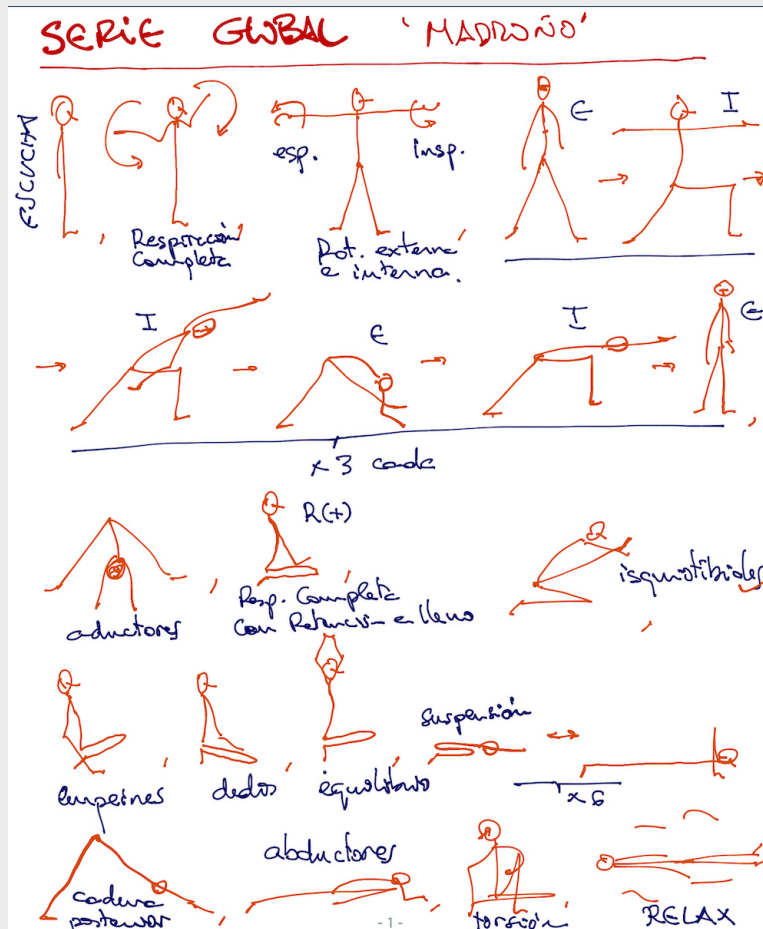 SERIE GLOBAL 'MADROÑO'
ESCUCHA
Respiración
Completa
esp.
insp.
Rot. externa
e interna.
E
I
I
E
I
E
x 3 cada
aductores
R(+)
Resp. Completa
con Retención en lleno
isquiotibiales
empeines
dedos
equilibrio
suspensión
x 6
cadena
posterior
abductores
torsión
RELAX
- 1 -